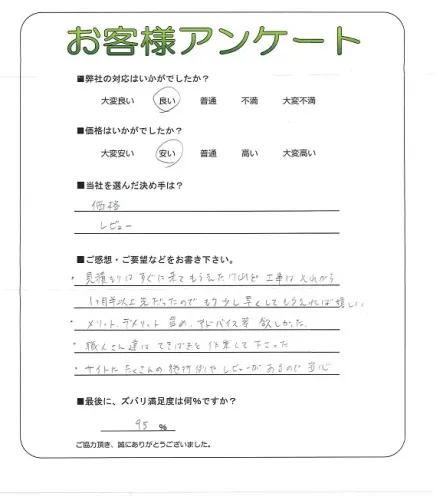 お客様アンケート
■弊社の対応はいかがでしたか？
大変良い 良い 普通 不満 大変不満
■価格はいかがでしたか？
大変安い 安い 普通 高い 大変高い
■当社を選んだ決め手は？
価格
レビュー
■ご感想・ご要望などをお書き下さい。
・見積もりはすぐに来てもらえたけれど 工事は それから
1ヶ月半以上先だったので もう少し早くしてもらえれば嬉しい
・メリット、デメリット 含め、アドバイス等 欲しかった
・職人さん達は てきぱきと 作業して下さった
・サイトに たくさんの 施行例や レビューが あるので 安心
■最後に、ズバリ満足度は何%ですか？
95 %
ご協力頂き、誠にありがとうございました。